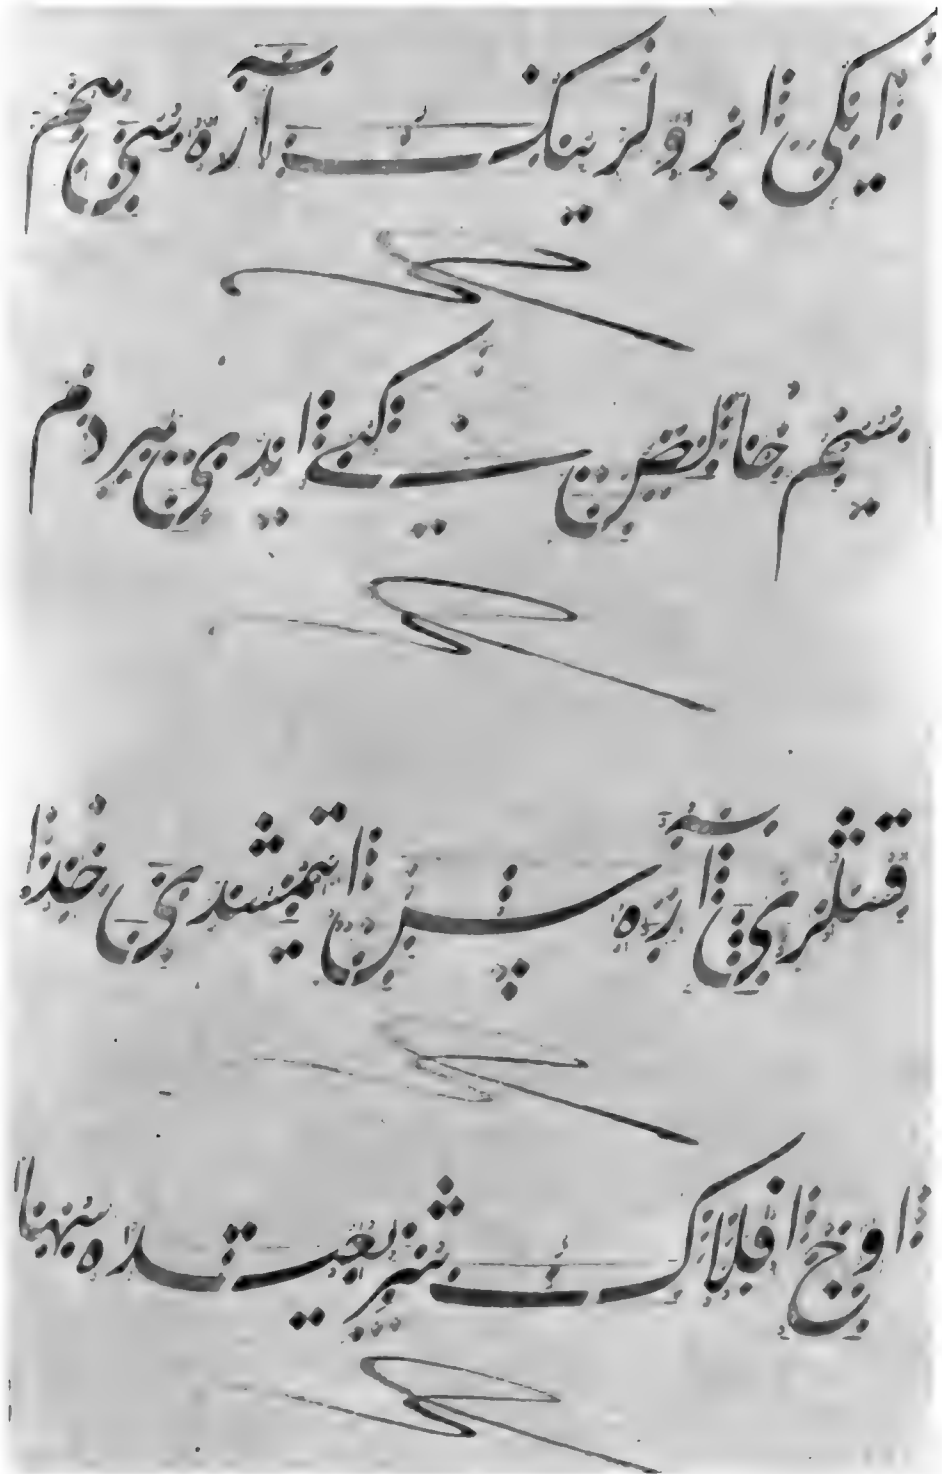 ایکی ابرولرینک آره سی هم
سیم خالص کبی ایدی هر دم
قشلری آره سن ایتمشدی خدا
اوج افلاک شریعتده سها